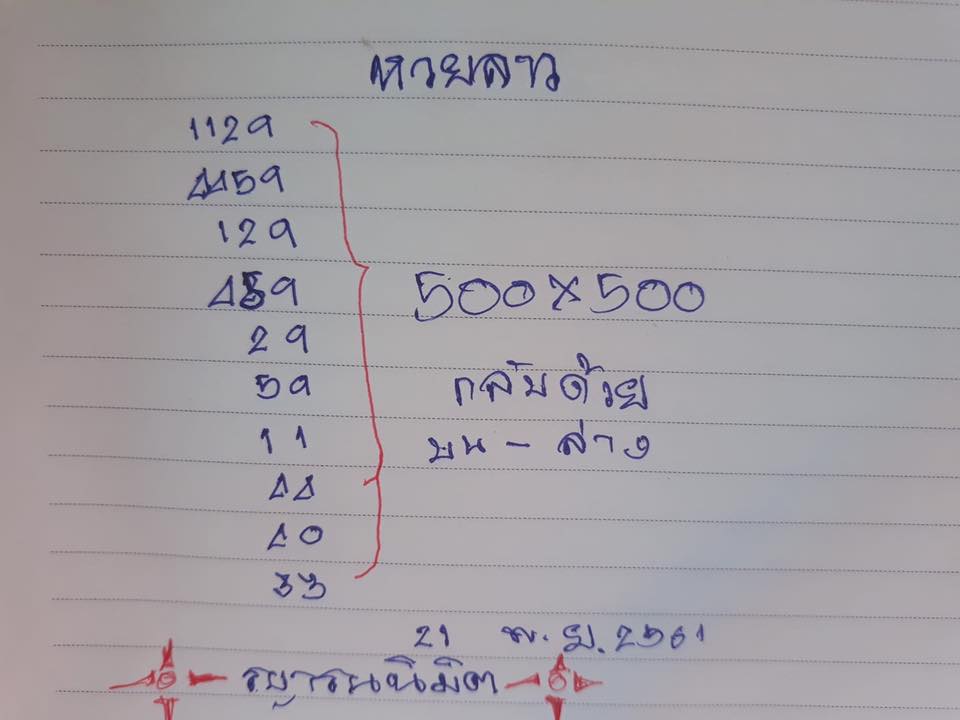 หวยลาว
1129
4459
129
459
29
59
11
44
40
33
500x500
กลับด้วย
บน - ล่าง
21 พ.ย. 2561